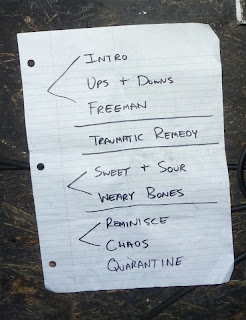 INTRO
UPS + DOWNS
FREEMAN
TRAUMATIC REMEDY
SWEET + SOUR
WEARY BONES
REMINISCE
CHAOS
QUARANTINE